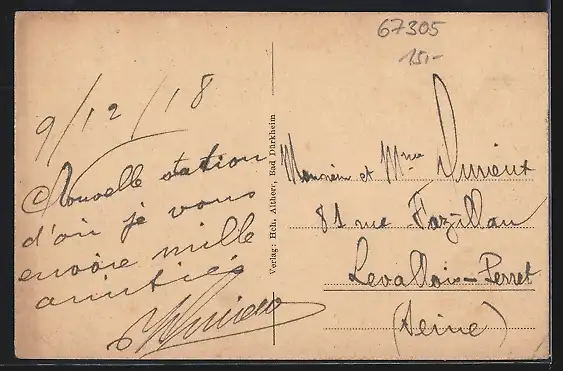 67305
15,-
9/12/18
Nouvelle station
d'où je vous
envoie mille
amitiés
Verlag: Hch. Altherr, Bad Dürkheim
Monsieur et Mme
81 rue Fazillau
Levallois-Perret
(Seine)